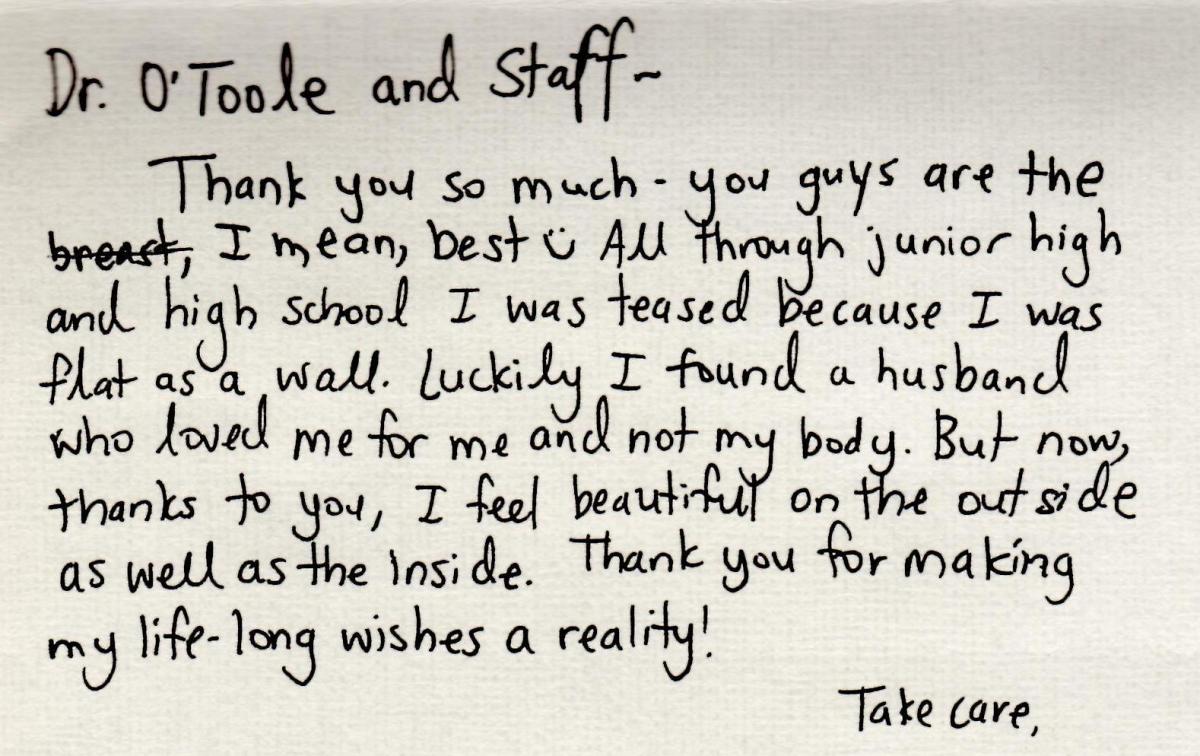 Dr. O'Toole and Staff~
Thank you so much - you guys are the
breast, I mean, best ü All through junior high
and high school I was teased because I was
flat as a wall. Luckily I found a husband
who loved me for me and not my body. But now,
thanks to you, I feel beautiful on the outside
as well as the inside. Thank you for making
my life-long wishes a reality!
Take care,